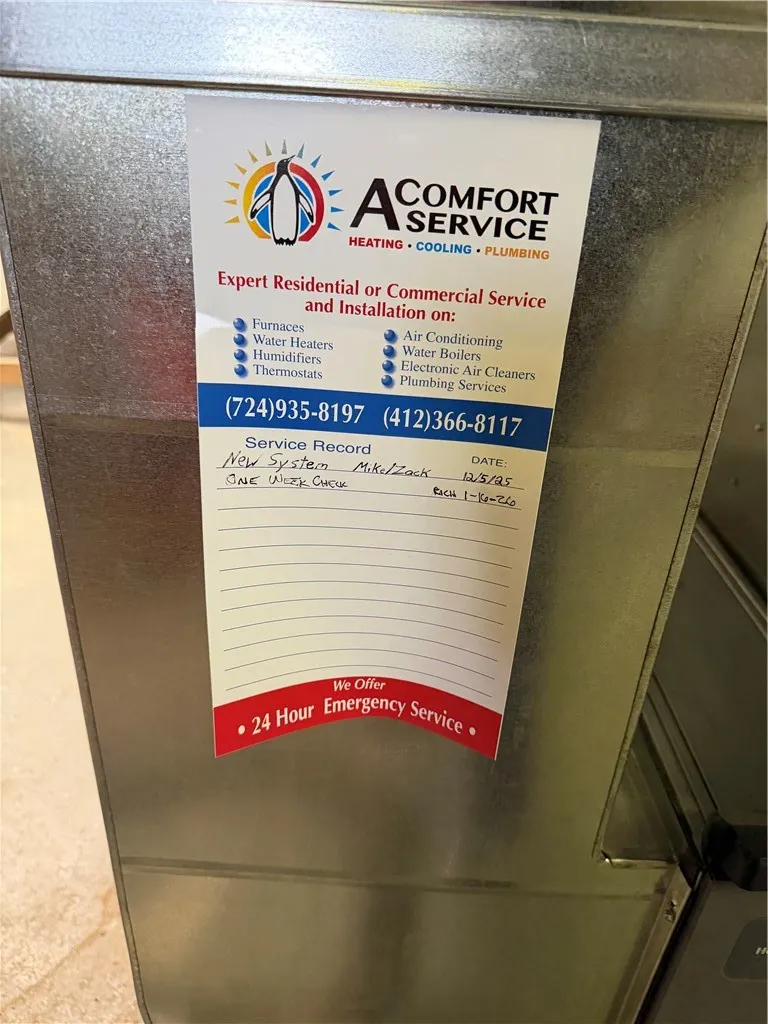 A COMFORT
SERVICE
HEATING • COOLING • PLUMBING
Expert Residential or Commercial Service
and Installation on:
Furnaces
Water Heaters
Humidifiers
Thermostats
Air Conditioning
Water Boilers
Electronic Air Cleaners
Plumbing Services
(724)935-8197 (412)366-8117
Service Record DATE:
New System Mike/Zack 12/5/25
ONE WEEK CHECK RICH 1-16-26
We Offer
• 24 Hour Emergency Service •